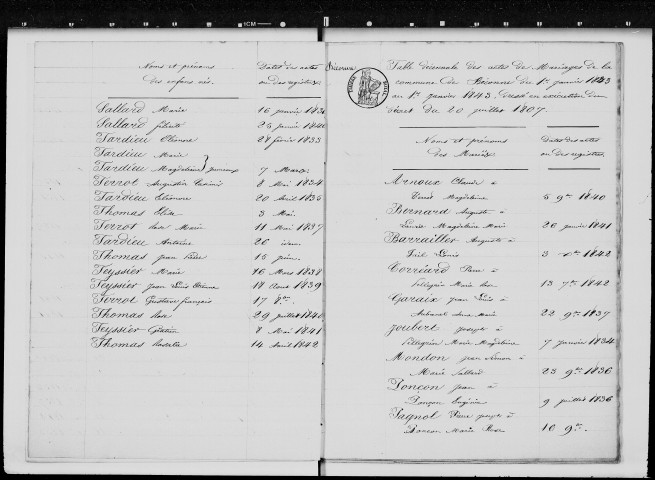 1CM
Noms et prénoms
des enfans nés.
Dates des actes
ou des registres
Sallard Marie 16 janvier 183
Sallard 25 janvier 1840
Tardieu Eléonore 28 février 1833
Tardieu Marie
Tardieu Magdeleine jumeaux 7 Mars
Terrot Augustin Casimir 8 Mai 1834
Tardieu Eléonore 20 Avril 1835
Thomas Elise 3 Mai
Terrot Rose Marie 11 Mai 1837
Tardieu Antoine 26 idem
Thomas jean 15 juin
Teyssier Marie 16 Mars 1838
Teyssier jean Louis Etienne 18 Aout 1839
Terrot Gustave françois 17 8bre
Thomas Rose 29 juillet 1840
Teyssier 8 Mai 1841
Thomas 14 Avril 1842
Table décennale des actes de Mariages de la
commune de du 1er janvier 1833
au 1er janvier 1843, dressé en exécution du
décret du 20 juillet 1807
Noms et prénoms
des Mariés
Dates des actes
ou des registres
Arnoux Claude à
Magdeleine 5 9bre 1840
Bernard Auguste à
Magdeleine Marie 26 janvier 1841
Barrailler Auguste à
3 1842
Corréard à
Pellegrin Marie Rose 13 7bre 1842
Garaix jean Louis à
Marie 22 9bre 1837
Joubert joseph à
Pellegrin Marie Magdeleine 7 janvier 1834
Mondon jean Simon à
Marie Sallard 23 9bre 1836
Ponçon jean à
Ponçon Eugénie 9 juillet 1836
Pagnol joseph à
Ponçon Marie Rose 16 9bre